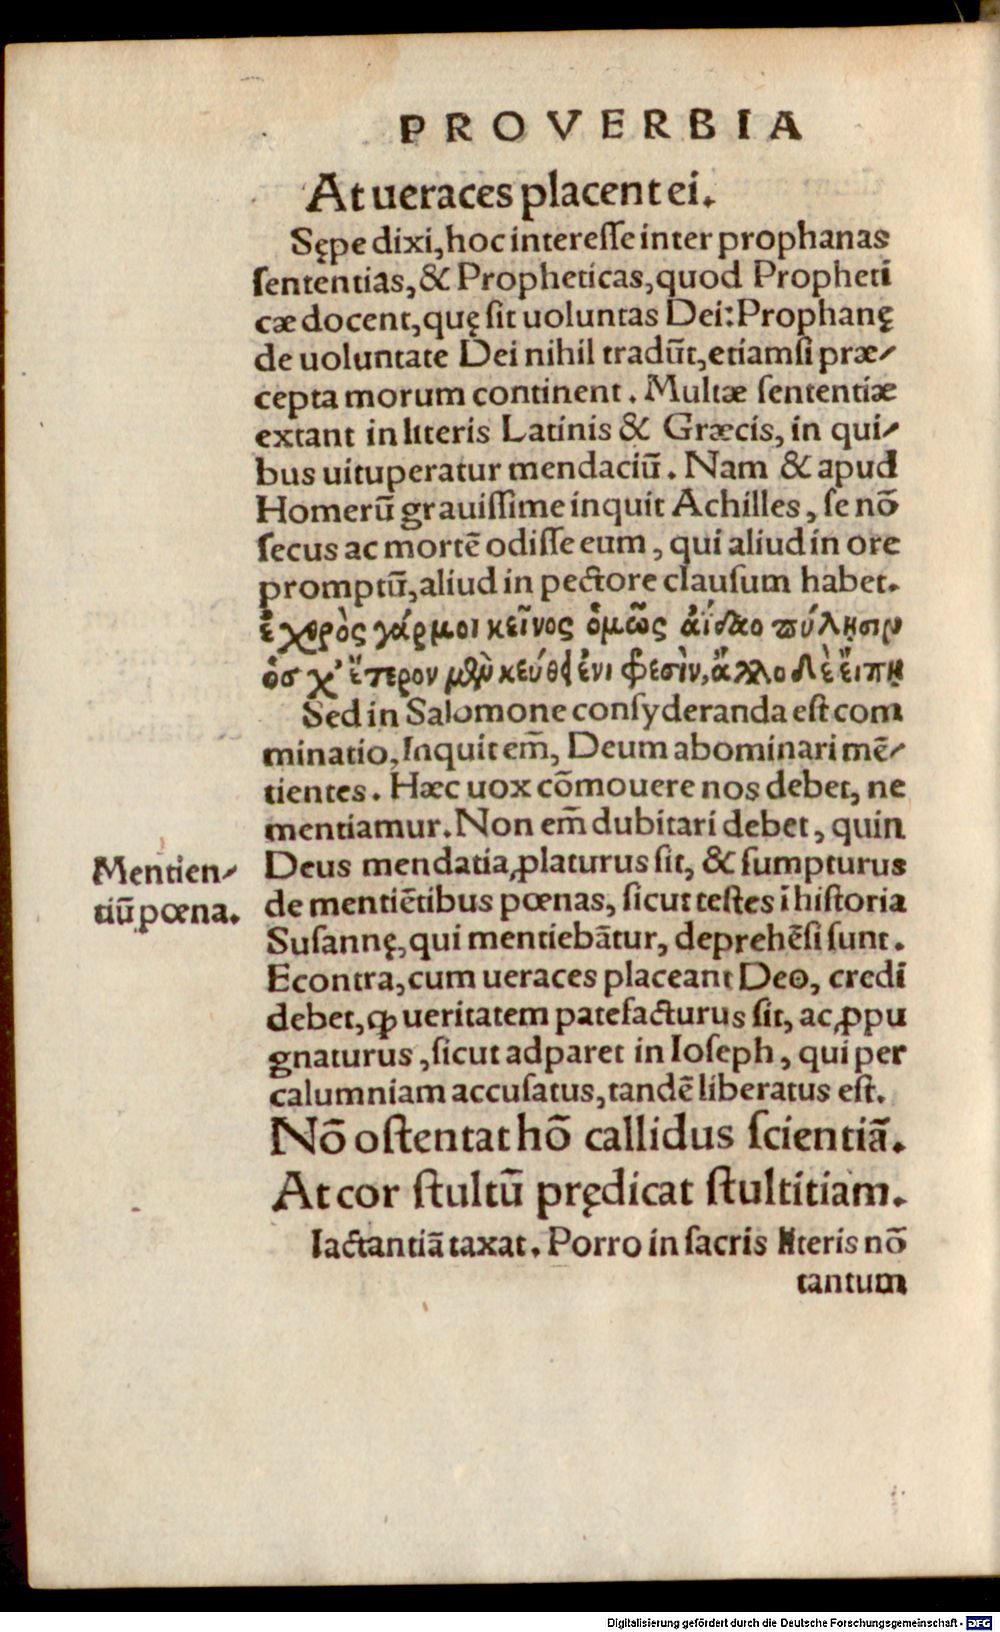 PROVERBIA
At ueraces placent ei.
Sępe dixi, hoc interesse inter prophanas
sententias, & Propheticas, quod Propheti
cæ docent, quę sit uoluntas Dei: Prophanę
de uoluntate Dei nihil tradūt, etiamsi præ-
cepta morum continent. Multæ sententiæ
extant in literis Latinis & Græcis, in qui-
bus uituperatur mendaciū. Nam & apud
Homerū grauissime inquit Achilles, se nō
secus ac mortē odisse eum, qui aliud in ore
promptū, aliud in pectore clausum habet.
ἐχθρὸς γάρ μοι κεῖνος ὁμῶς ἀίδαο πύλῃσιν
ὁσ χ' ἕτερον μὲν κεύθει ἐνι φεσὶν, ἄλλο δὲ εἴπῃ
Sed in Salomone consyderanda est com
minatio, Inquit em̄, Deum abominari mē-
tientes. Hæc uox cōmouere nos debet, ne
mentiamur. Non em̄ dubitari debet, quin
Mentien-
tiū pœna.
Deus mendatia ꝓlaturus sit, & sumpturus
de mentiētibus pœnas, sicut testes ī historia
Susannę, qui mentiebātur, deprehēsi sunt.
Econtra, cum ueraces placeant Deo, credi
debet, ꝙ ueritatem patefacturus sit, ac ꝓpu
gnaturus, sicut adparet in Ioseph, qui per
calumniam accusatus, tandē liberatus est.
Nō ostentat hō callidus scientiā.
At cor stultū prędicat stultitiam.
Iactantiā taxat. Porro in sacris literis nō
tantum
Digitalisierung gefördert durch die Deutsche Forschungsgemeinschaft - DFG